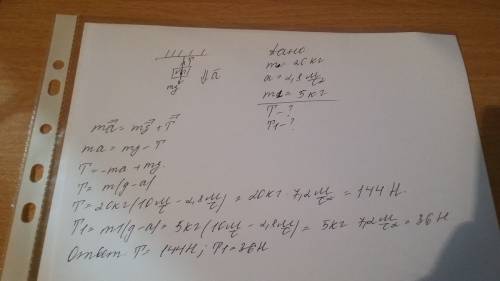 Дано
m = 20 кг
a = 2,8 м/с²
m1 = 5 кг
T - ?
T1 - ?
T
mg
a
ma = mg + T
ma = mg - T
T = -ma + mg.
T = m(g-a)
T = 20 кг (10 м/с² - 2,8 м/с²) = 20 кг · 7,2 м/с² = 144 Н.
T1 = m1(g-a) = 5 кг (10 м/с² - 2,8 м/с²) = 5 кг 7,2 м/с² = 36 Н
Ответ T = 144 Н; T1 = 36 Н